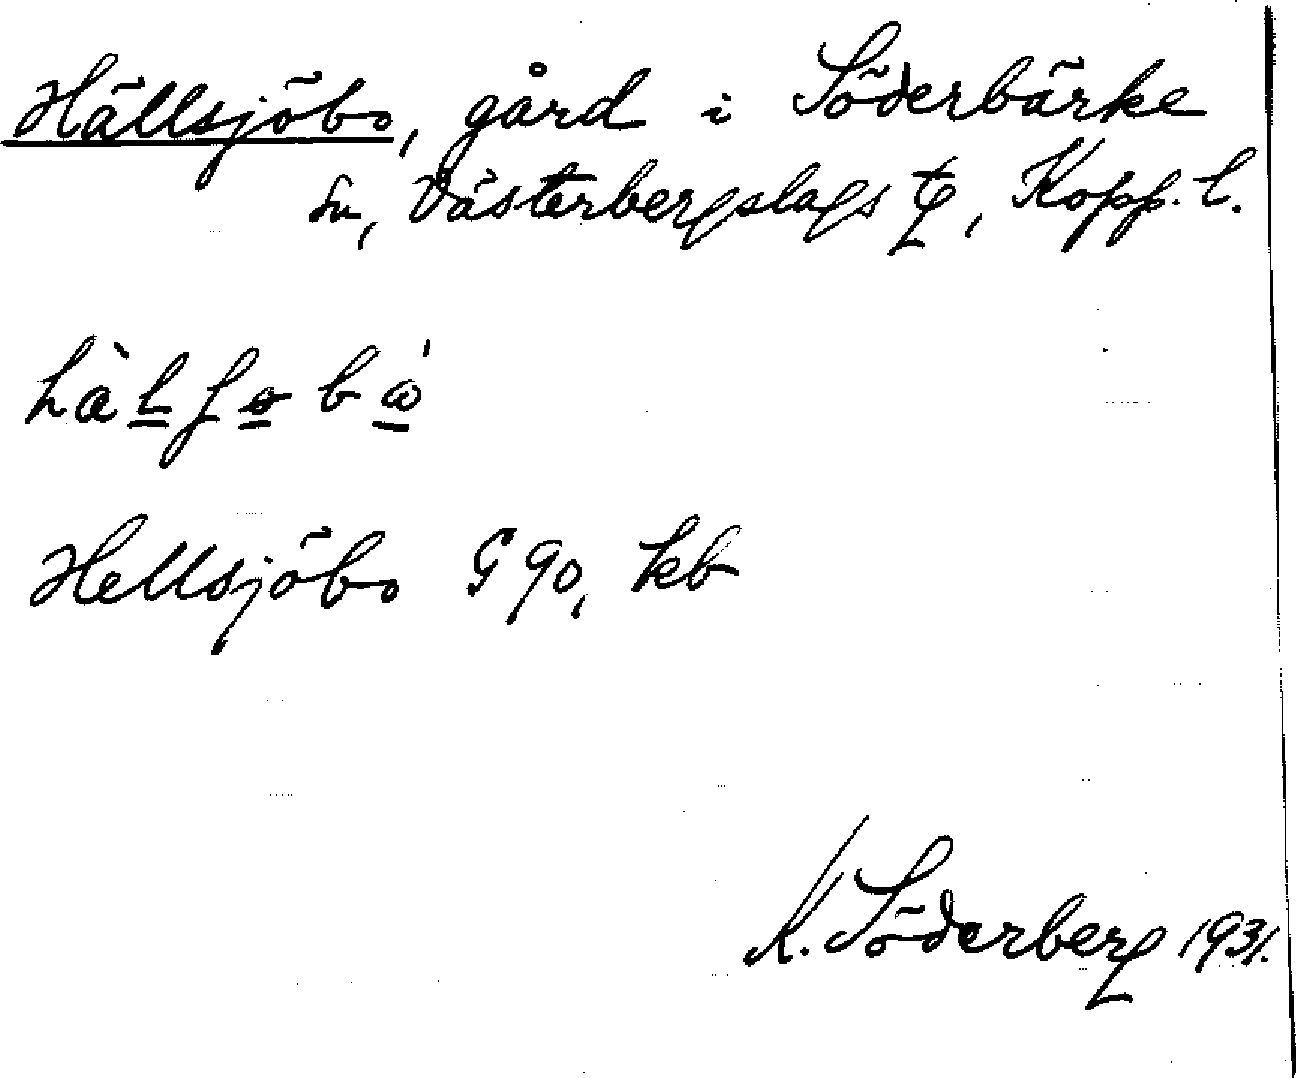 Hällsjöbo, gård i Söderbärke
sn, Västerbergslags tg, Kopp. l.
Hellsjöbo G 90, kb
K. Söderberg 1931.